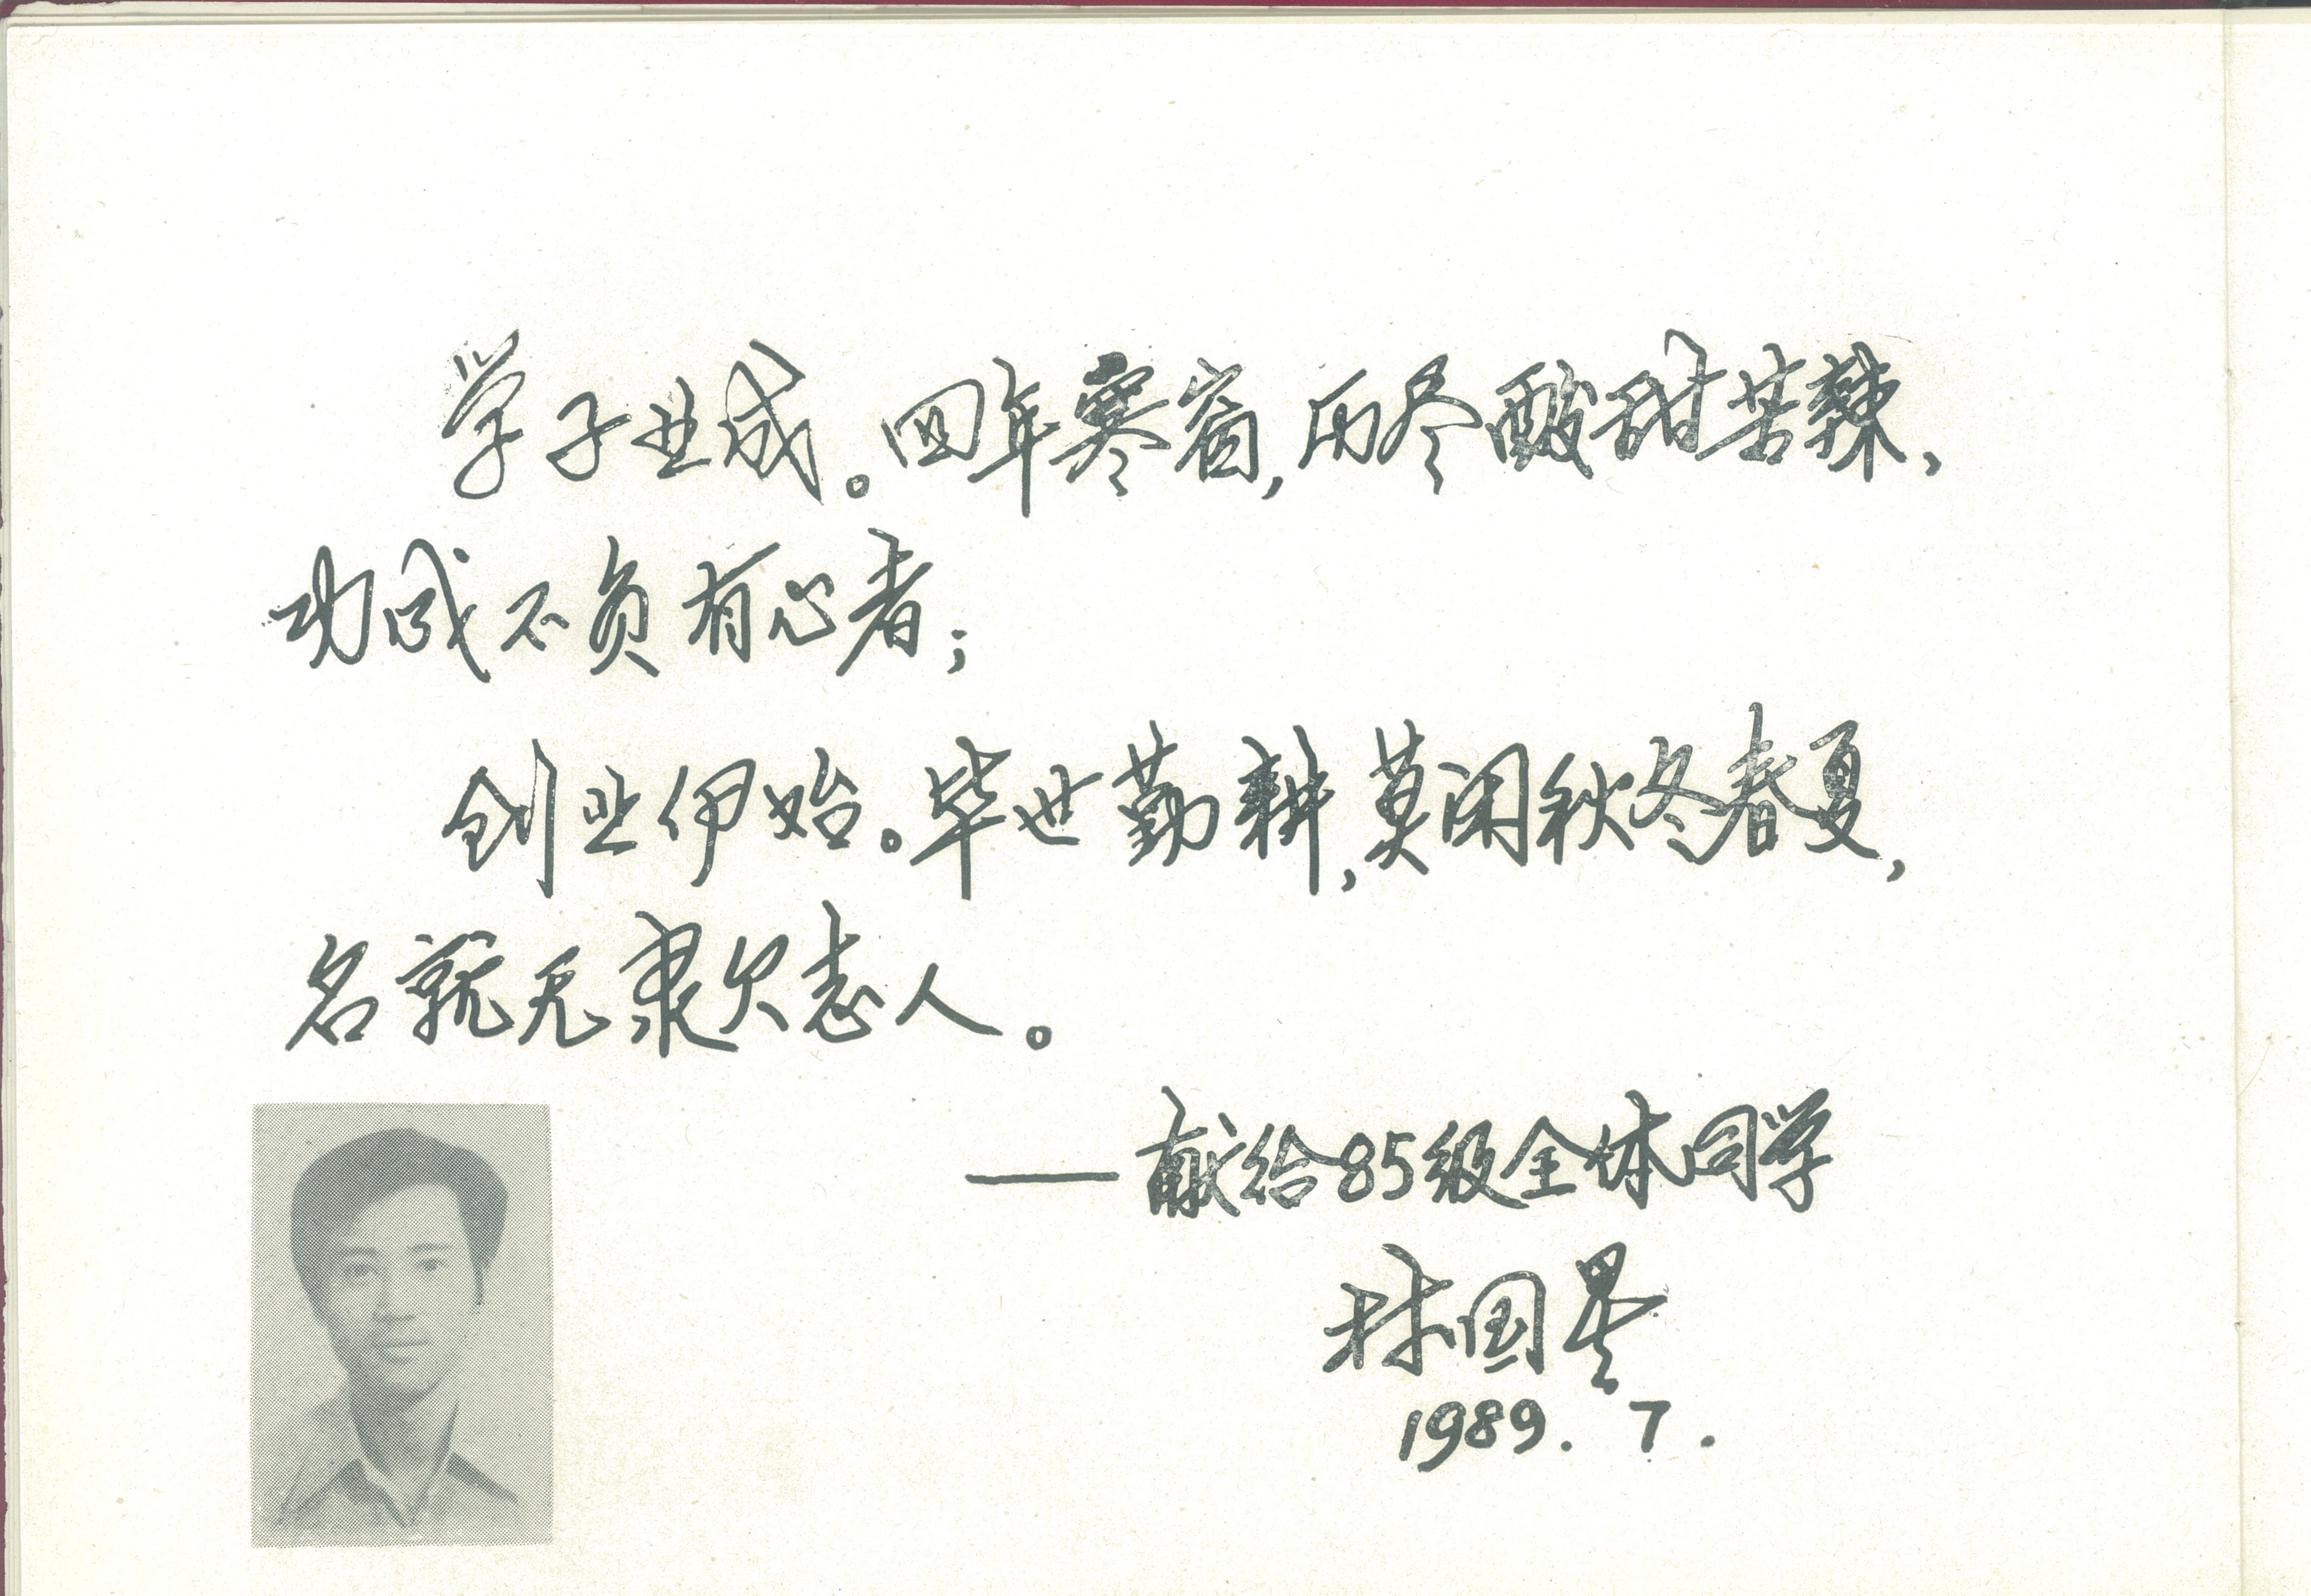 学子业成。四年寒窗,历尽酸甜苦辣,
功成不负有心者;
创业伊始。毕世勤耕,莫闲秋冬春夏,
名就无隶欠志人。
——献给85级全体同学
林国
1989.7.